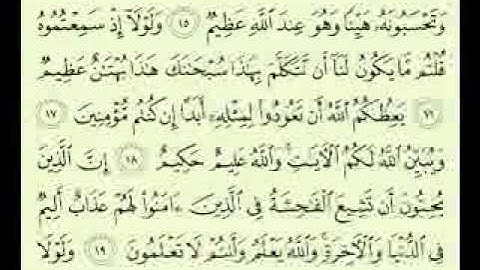 وَتَحْسَبُونَهُۥ هَيِّنًا وَهُوَ عِندَ ٱللَّهِ عَظِيمٌ ١٥ وَلَوْلَآ إِذْ سَمِعْتُمُوهُ
قُلْتُم مَّا يَكُونُ لَنَآ أَن نَّتَكَلَّمَ بِهَٰذَا سُبْحَٰنَكَ هَٰذَا بُهْتَٰنٌ عَظِيمٌ
١٦ يَعِظُكُمُ ٱللَّهُ أَن تَعُودُوا۟ لِمِثْلِهِۦٓ أَبَدًا إِن كُنتُم مُّؤْمِنِينَ ١٧
وَيُبَيِّنُ ٱللَّهُ لَكُمُ ٱلْءَايَٰتِ ۚ وَٱللَّهُ عَلِيمٌ حَكِيمٌ ١٨ إِنَّ ٱلَّذِينَ
يُحِبُّونَ أَن تَشِيعَ ٱلْفَٰحِشَةُ فِى ٱلَّذِينَ ءَامَنُوا۟ لَهُمْ عَذَابٌ أَلِيمٌ
فِى ٱلدُّنْيَا وَٱلْءَاخِرَةِ ۚ وَٱللَّهُ يَعْلَمُ وَأَنتُمْ لَا تَعْلَمُونَ ١٩ وَلَوْلَا